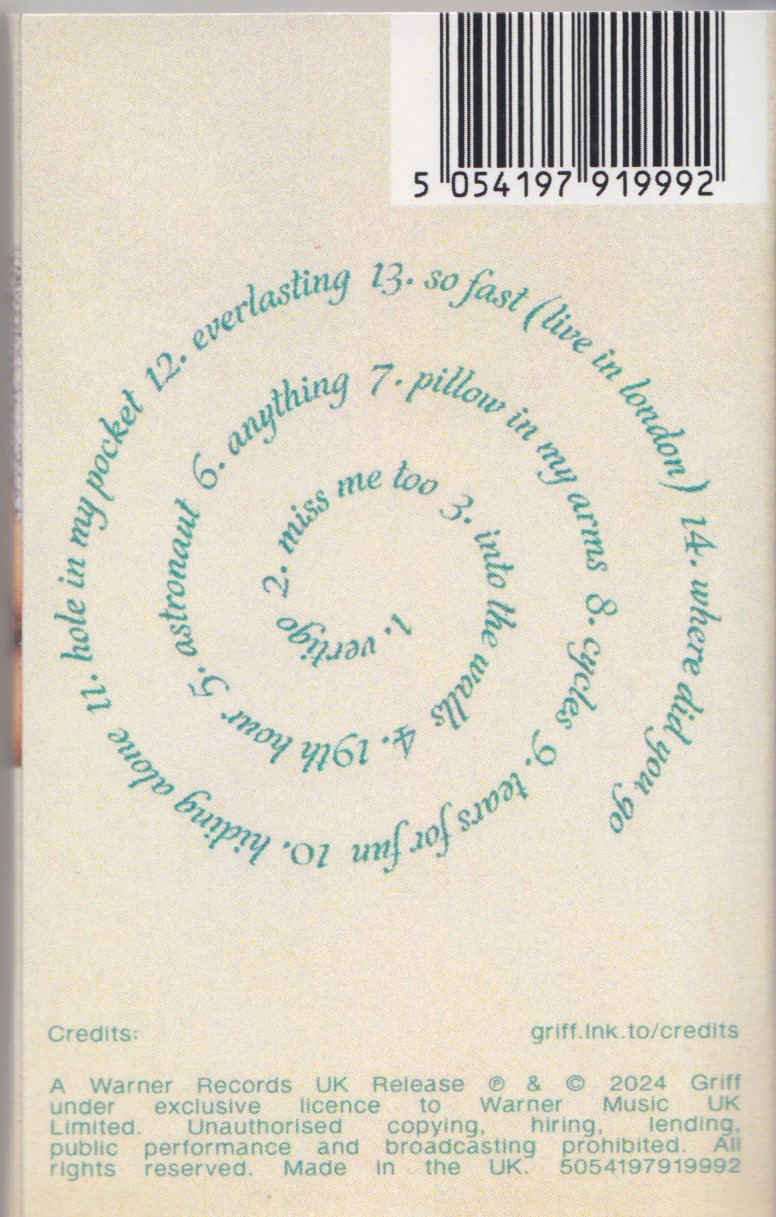 5 054197 919992
1. vertigo 2. miss me too 3. into the walls 4. 19th hour 5. astronaut 6. anything 7. pillow in my arms 8. cycles 9. tears for fun 10. hiding alone 11. hole in my pocket 12. everlasting 13. so fast (live in london) 14. where did you go
Credits: griff.lnk.to/credits
A Warner Records UK Release ℗ & © 2024 Griff
under exclusive licence to Warner Music UK
Limited. Unauthorised copying, hiring, lending,
public performance and broadcasting prohibited. All
rights reserved. Made in the UK. 5054197919992